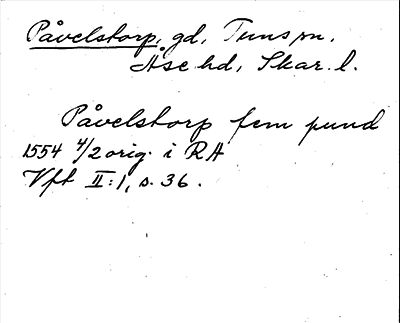 Påvelstorp, gd, Tuns sn,
Åse hd, Skar. l.
Påvelstorp fem pund
1554 4/2 orig. i RA
Vft II:1, s. 36.